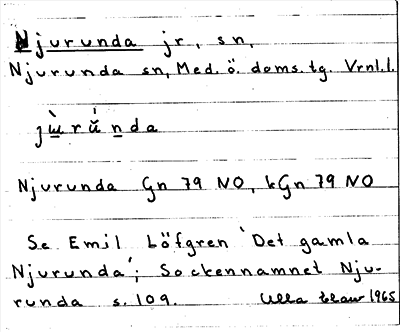 Njurunda jr, sn,
Njurunda sn, Med. ö. doms. tg. Vrnl.l.
jù̲rǘn̲da
Njurunda Gn 79 NO, kGn 79 NO
Se Emil Löfgren 'Det gamla
Njurunda'; Sockennamnet Nju-
runda s. 109. Ulla 1965